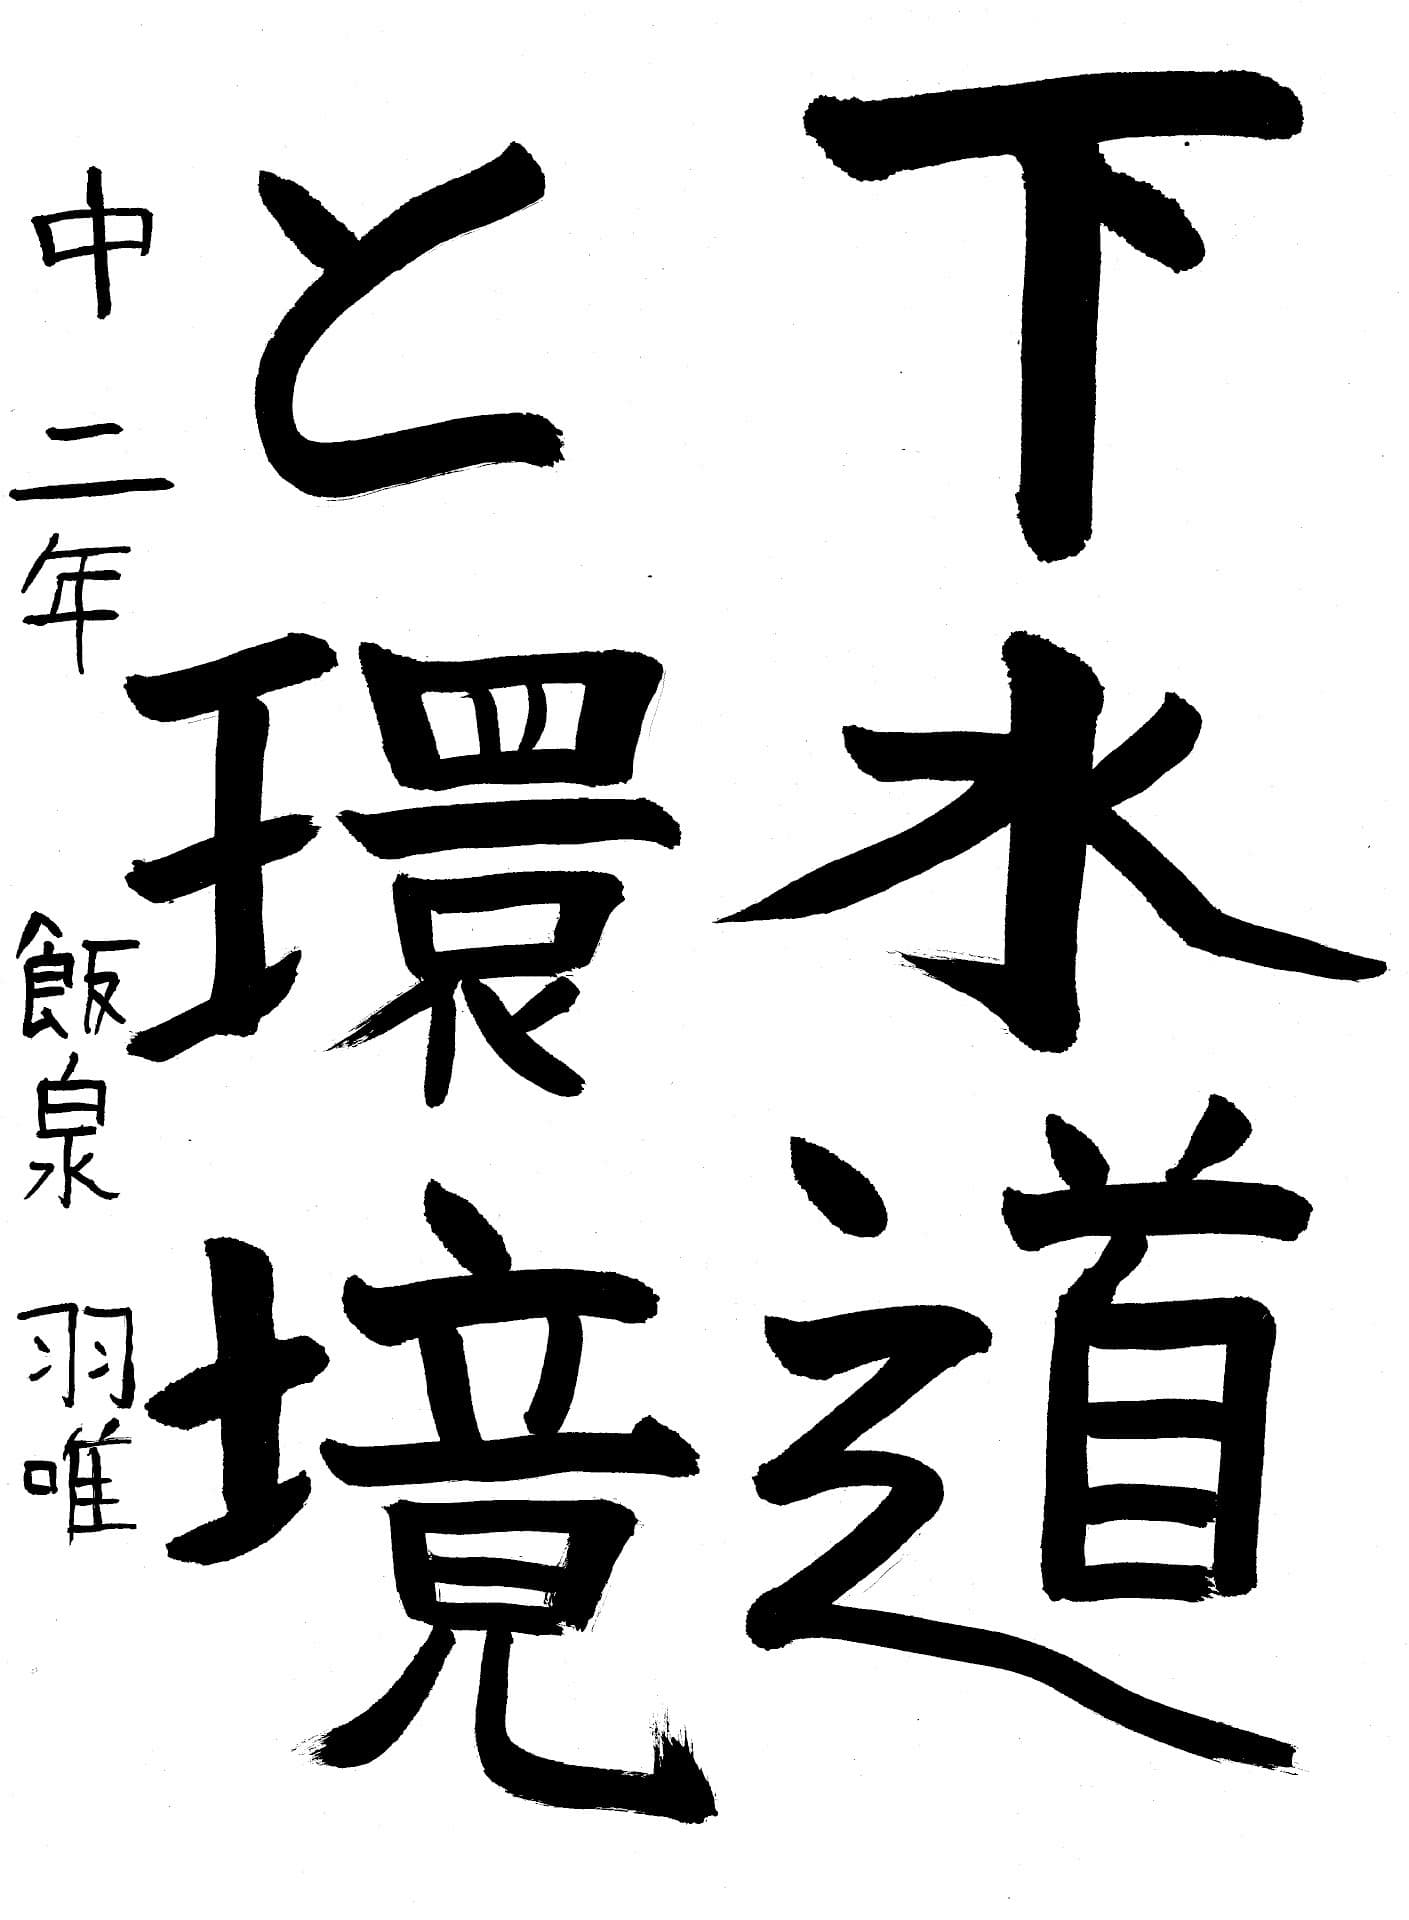 下水道
と環境
中二年 飯泉 羽唯